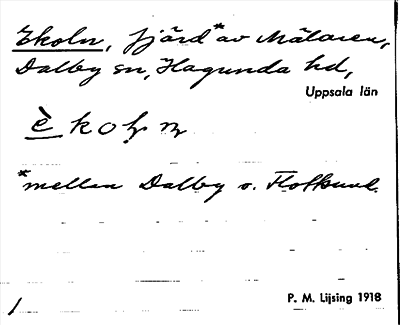 Ekoln, fjärd* av Mälaren,
Dalby sn, Hagunda hd,
Uppsala län
è k o ḷ ṇ
*mellan Dalby o. Flottsund.
P. M. Lijsing 1918
1